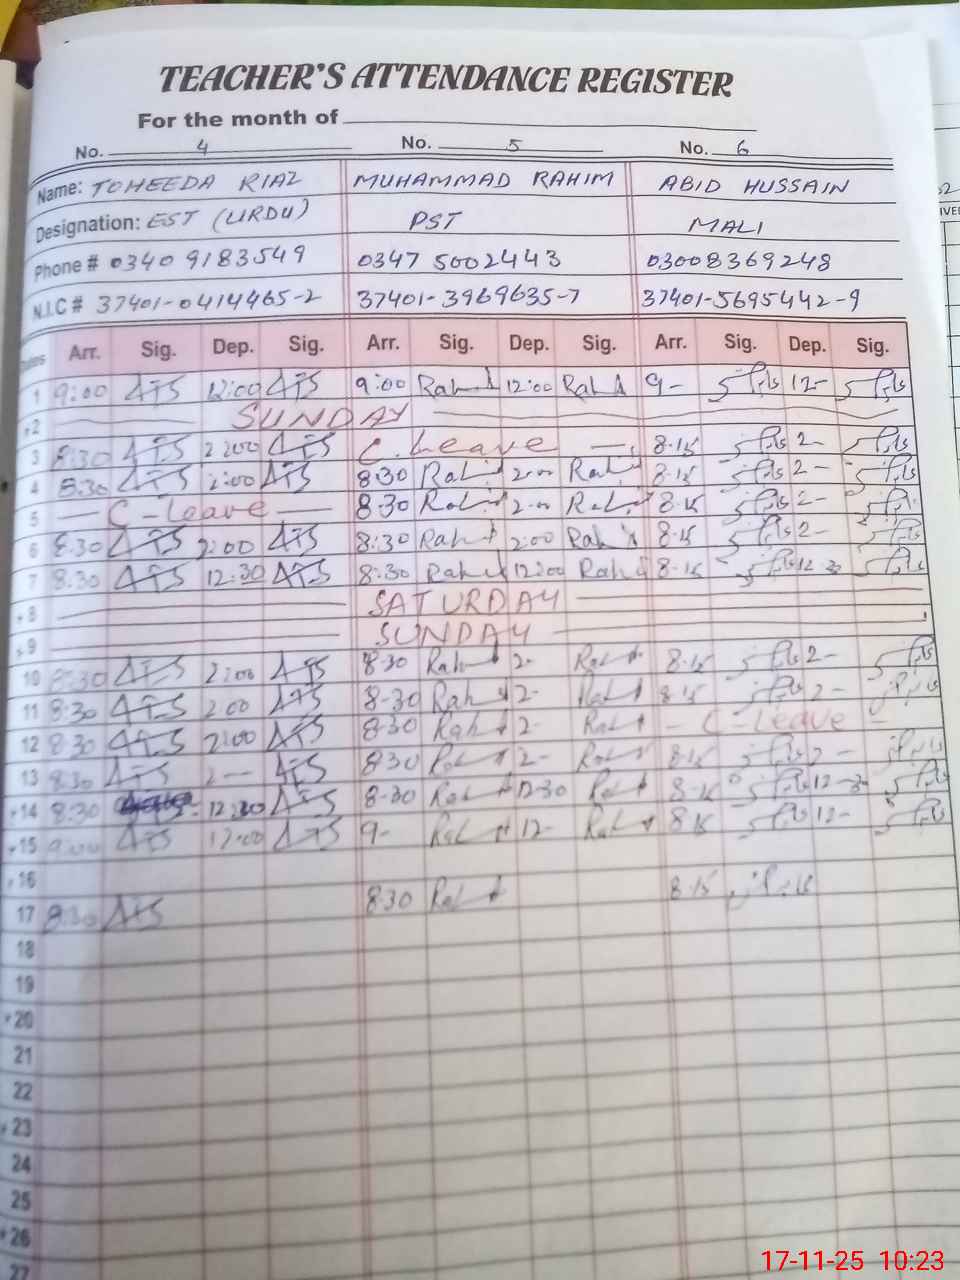 TEACHER'S ATTENDANCE REGISTER
For the month of
No. 4 No. 5 No. 6
Name: TOHEEDA RIAZ MUHAMMAD RAHIM ABID HUSSAIN
Designation: EST (URDU) PST MALI
Phone # 0340 9183549 0347 5002443 03008369248
N.I.C # 37401-0414465-2 37401-3969635-7 37401-5695442-9
Arr. Sig. Dep. Sig. Arr. Sig. Dep. Sig. Arr. Sig. Dep. Sig.
1 9:00 12:00 9:00 Rah 12:00 Rah 9- 12-
2 SUNDAY
3 8:30 2:00 C. Leave 8.15 2-
4 8:30 2:00 8:30 Rah 2-00 Rah 8.15 2-
5 C-Leave 8.30 Rah 2-00 Rah 8.15 2-
6 8.30 2:00 8:30 Rah 2:00 Rah 8.15 2-
7 8.30 12:30 8:30 Rah 12:00 Rah 8.15 12-30
8 SATURDAY
9 SUNDAY
10 8:30 2:00 8-30 Rah 2- Rah 8.15 2-
11 8:30 2:00 8-30 Rah 2- Rah 8.15 2-
12 8:30 2:00 8-30 Rah 2- Rah - C-Leave -
13 8:30 2- 8.30 Rah 2- Rah 8.15 2-
14 8:30 12:30 8-30 Rah 12-30 Rah 8.15 12-30
15 9:00 12:00 9- Rah 12- Rah 8.15 12-
16
17 8:30 8.30 Rah 8.15
18
19
20
21
22
23
24
25
26
27
17-11-25 10:23